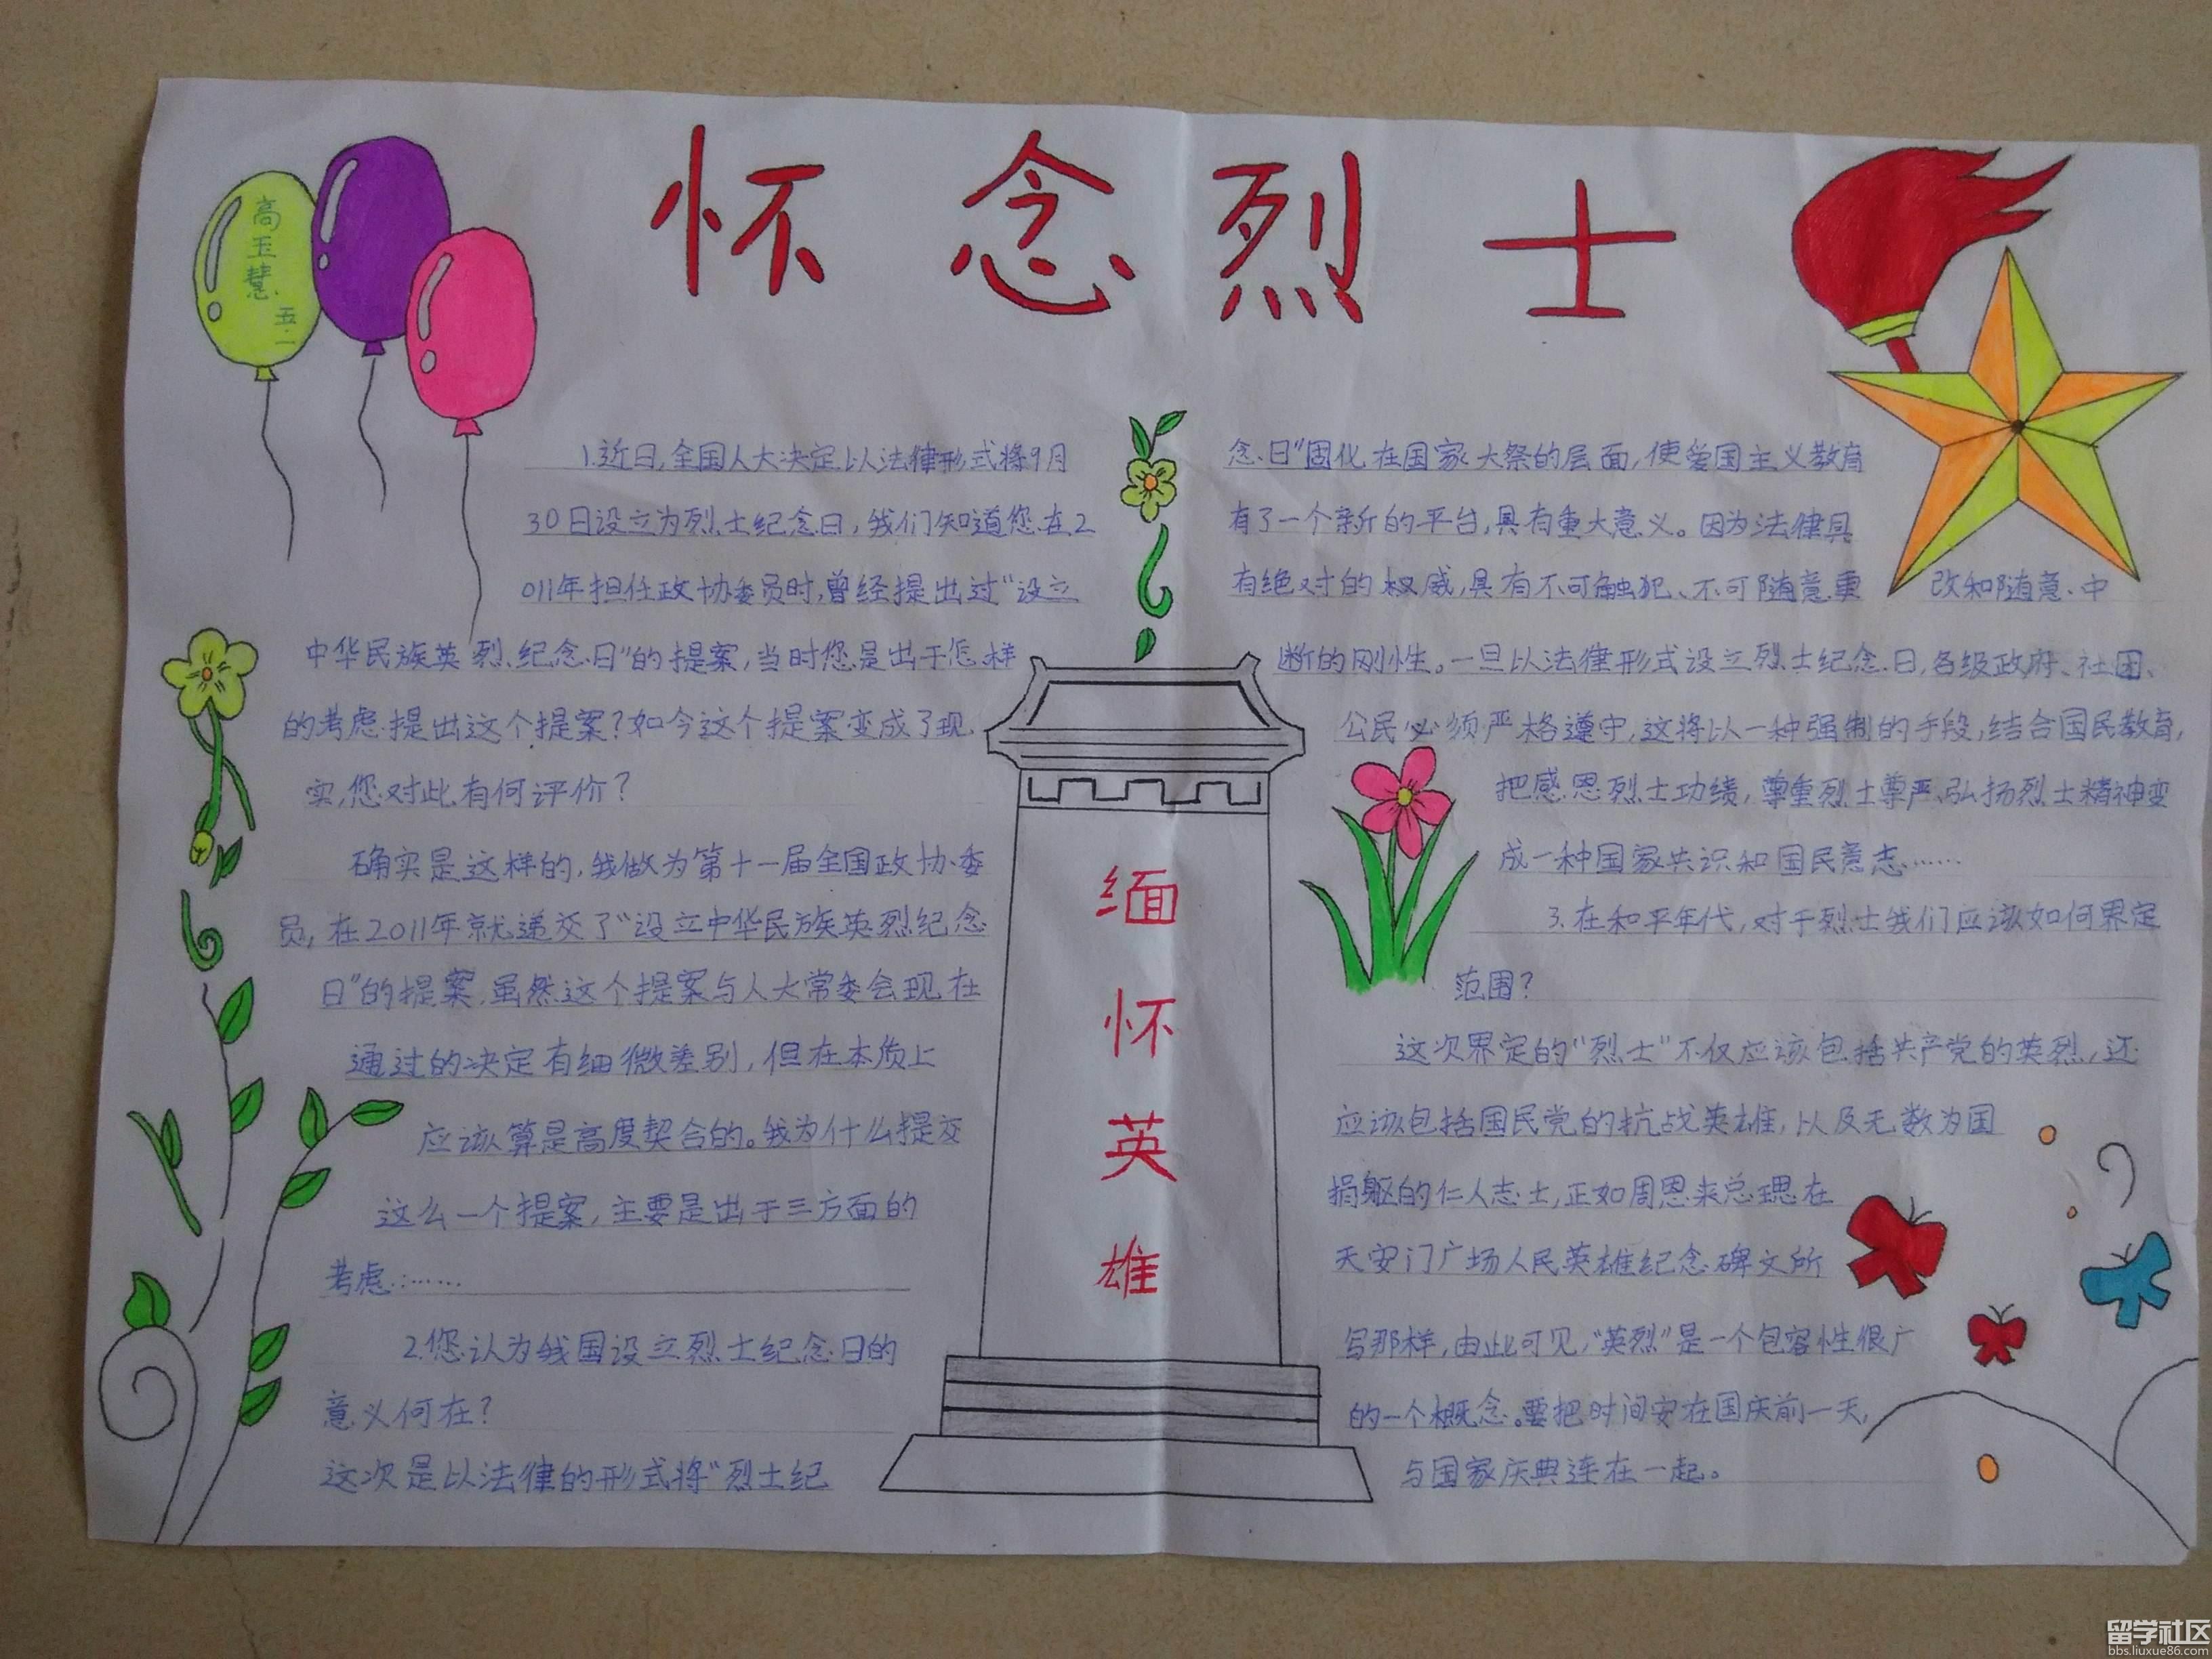 怀念烈士
高玉慧
五.一
1.近日,全国人大决定以法律形式将9月
30日设立为烈士纪念日,我们知道您在2
011年担任政协委员时,曾经提出过“设立
中华民族英烈纪念日”的提案,当时您是出于怎样
的考虑提出这个提案?如今这个提案变成了现
实,您对此有何评价?
确实是这样的,我做为第十一届全国政协委
员,在2011年就递交了“设立中华民族英烈纪念
日”的提案,虽然这个提案与人大常委会现在
通过的决定有细微差别,但在本质上
应该算是高度契合的。我为什么提交
这么一个提案,主要是出于三方面的
考虑:……
2.您认为我国设立烈士纪念日的
意义何在?
这次是以法律的形式将“烈士纪
念日”固化在国家大祭的层面,使爱国主义教育
有了一个新的平台,具有重大意义。因为法律具
有绝对的权威,具有不可触犯、不可随意更改和随意中
断的刚性。一旦以法律形式设立烈士纪念日,各级政府、社团、
公民必须严格遵守,这将以一种强制的手段,结合国民教育,
把感恩烈士功绩,尊重烈士尊严,弘扬烈士精神变
成一种国家共识和国民意志……
3.在和平年代,对于烈士我们应该如何界定
范围?
这次界定的“烈士”不仅应该包括共产党的英烈,还
应该包括国民党的抗战英雄,以及无数为国
捐躯的仁人志士,正如周恩来总理在
天安门广场人民英雄纪念碑文所
写那样,由此可见,“英烈”是一个包容性很广
的一个概念。要把时间安在国庆前一天,
与国家庆典连在一起。
缅怀英雄
留学社区
bbs.liuxue86.com